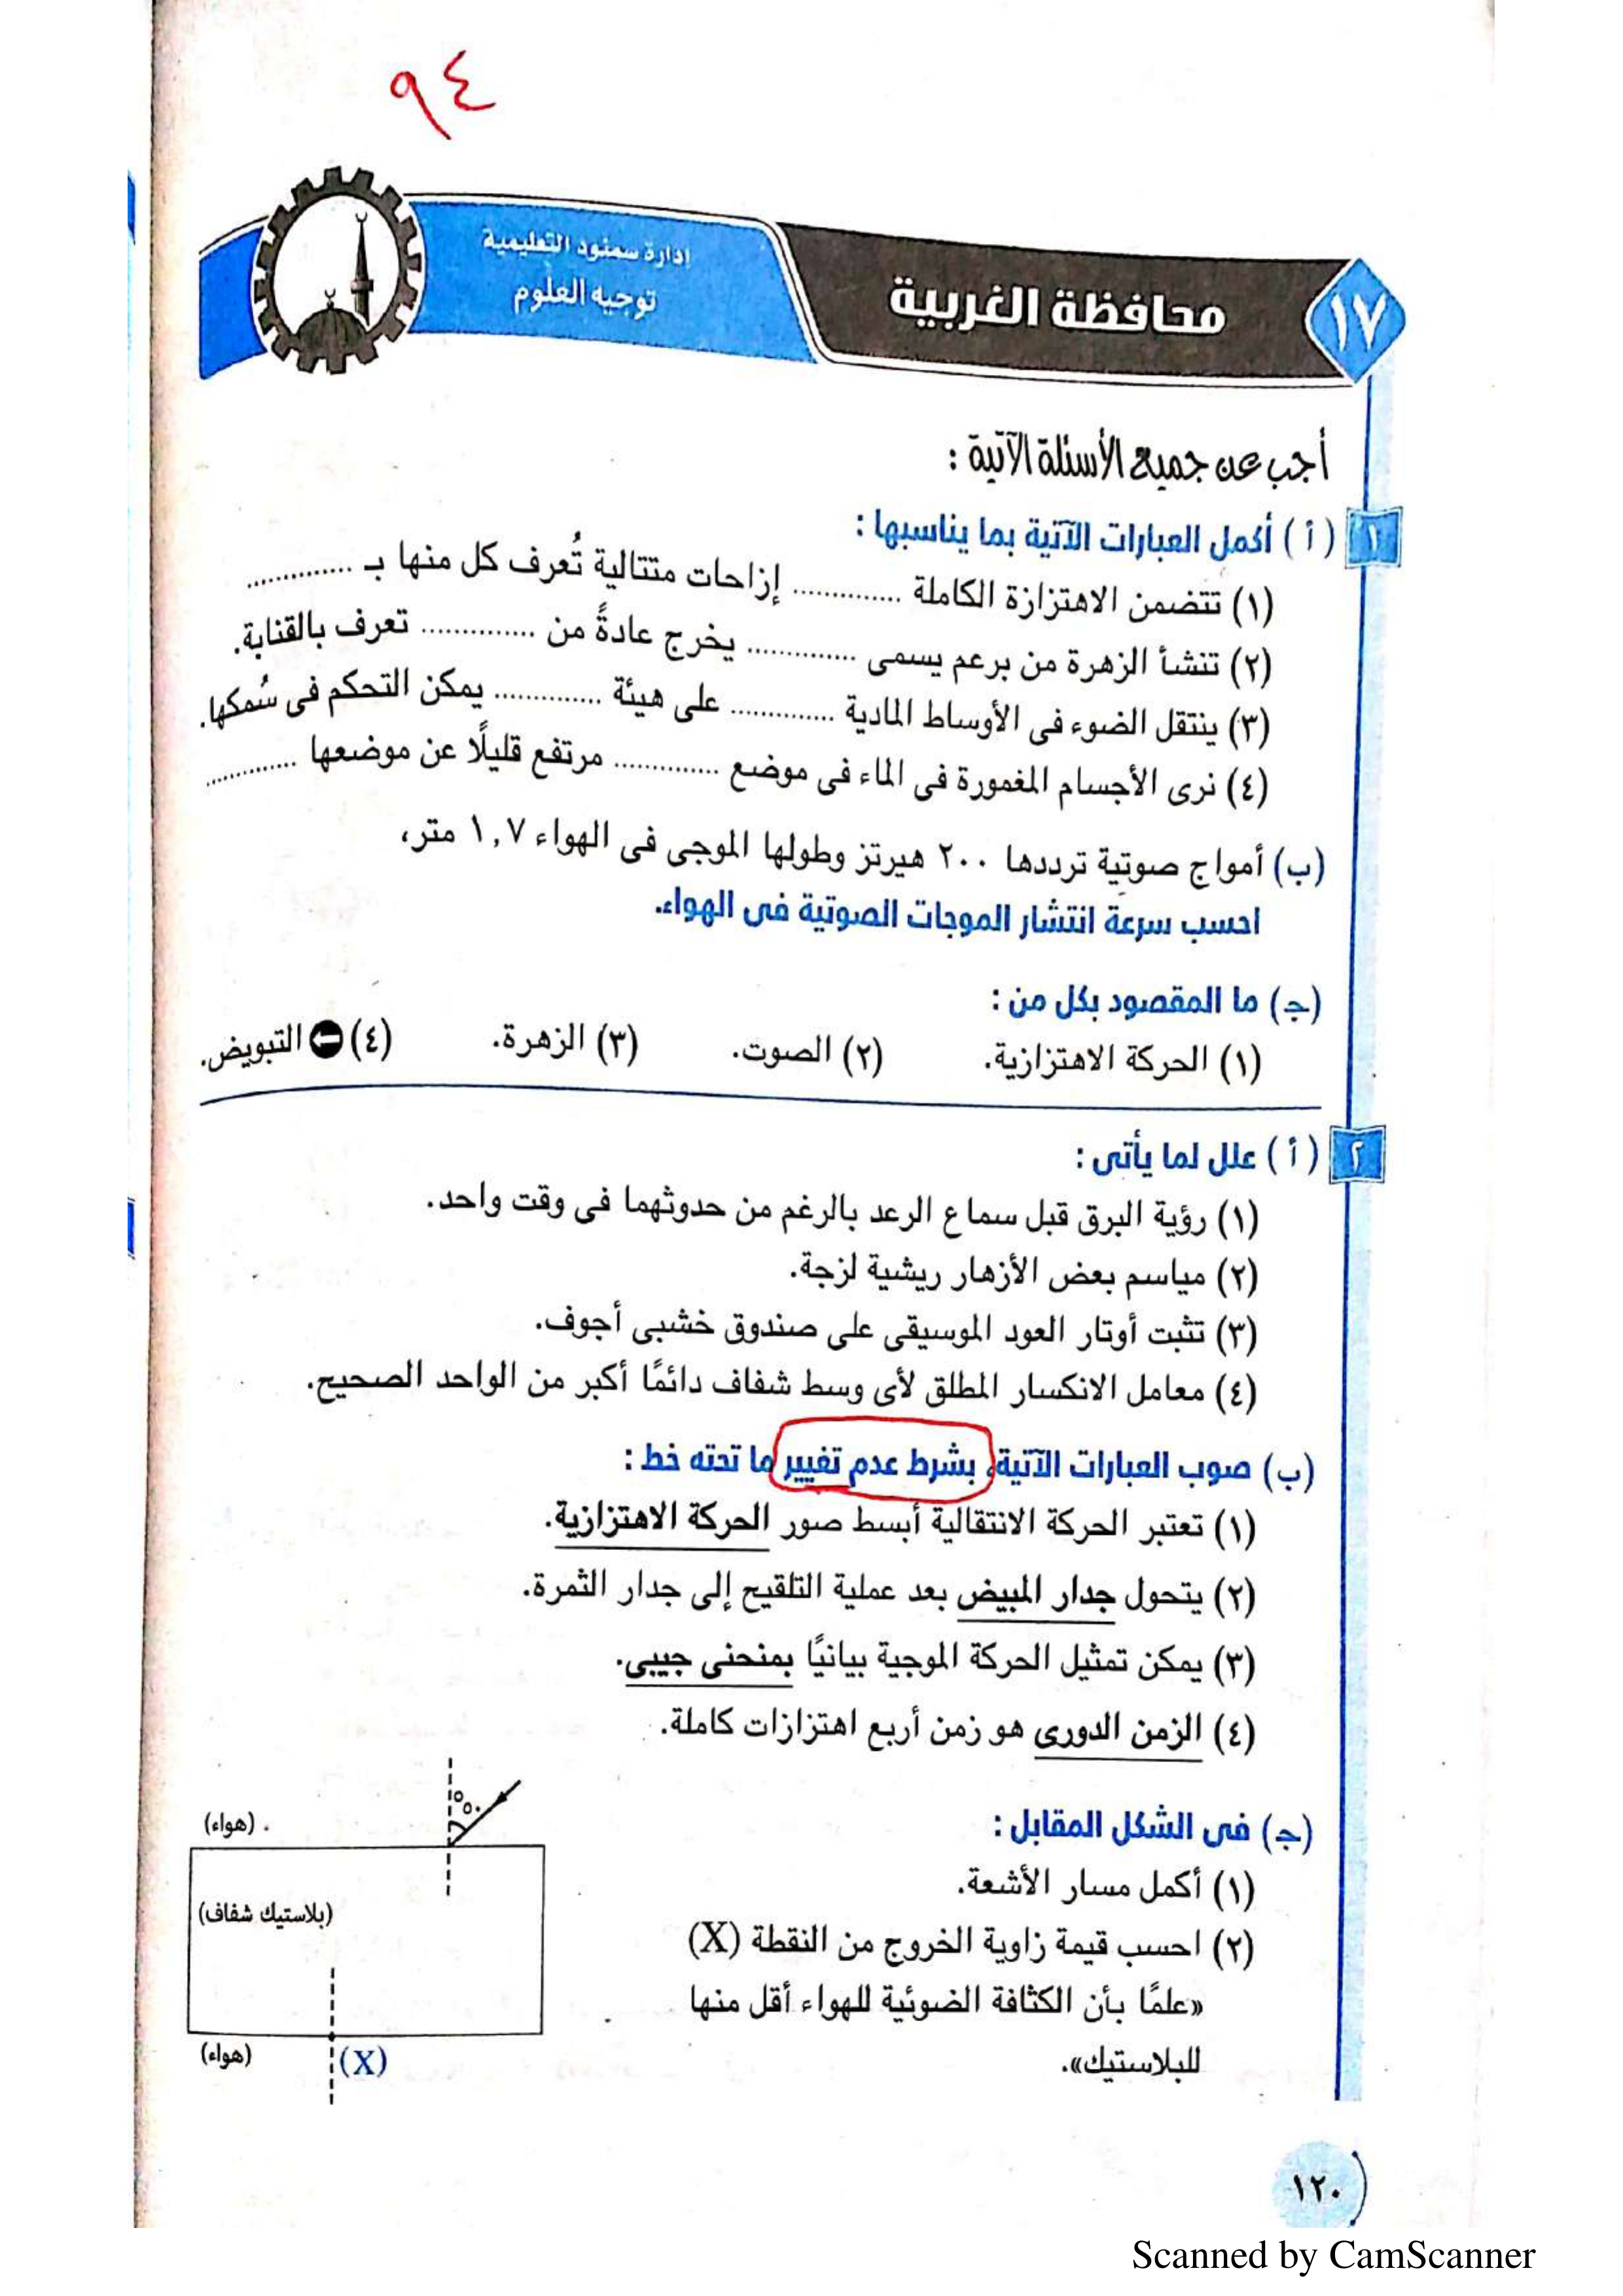 ٩٤
إدارة سمنود التعليمية
توجيه العلوم
محافظة الغربية
١٧
أجب عن جميع الأسئلة الآتية :
١ ( أ ) أكمل العبارات الآتية بما يناسبها :
(١) تتضمن الاهتزازة الكاملة .............. إزاحات متتالية تُعرف كل منها بـ ..............
(٢) تنشأ الزهرة من برعم يسمى .............. يخرج عادةً من .............. تعرف بالقنابة.
(٣) ينتقل الضوء فى الأوساط المادية .............. على هيئة .............. يمكن التحكم فى سُمكها.
(٤) نرى الأجسام المغمورة فى الماء فى موضع .............. مرتفع قليلًا عن موضعها ..............
(ب) أمواج صوتية ترددها ٢٠٠ هيرتز وطولها الموجى فى الهواء ١,٧ متر،
احسب سرعة انتشار الموجات الصوتية فى الهواء.
(جـ) ما المقصود بكل من :
(١) الحركة الاهتزازية. (٢) الصوت. (٣) الزهرة. (٤) التبويض.
٢ ( أ ) علل لما يأتى :
(١) رؤية البرق قبل سماع الرعد بالرغم من حدوثهما فى وقت واحد.
(٢) مياسم بعض الأزهار ريشية لزجة.
(٣) تثبت أوتار العود الموسيقى على صندوق خشبى أجوف.
(٤) معامل الانكسار المطلق لأى وسط شفاف دائمًا أكبر من الواحد الصحيح.
(ب) صوب العبارات الآتية، بشرط عدم تغيير ما تحته خط :
(١) تعتبر الحركة الانتقالية أبسط صور الحركة الاهتزازية.
(٢) يتحول جدار المبيض بعد عملية التلقيح إلى جدار الثمرة.
(٣) يمكن تمثيل الحركة الموجية بيانيًا بمنحنى جيبى.
(٤) الزمن الدورى هو زمن أربع اهتزازات كاملة.
(جـ) فى الشكل المقابل :
(١) أكمل مسار الأشعة.
(٢) احسب قيمة زاوية الخروج من النقطة (X)
«علمًا بأن الكثافة الضوئية للهواء أقل منها
للبلاستيك».
٥٠°
(هواء)
(بلاستيك شفاف)
(هواء)
(X)
١٢٠
Scanned by CamScanner